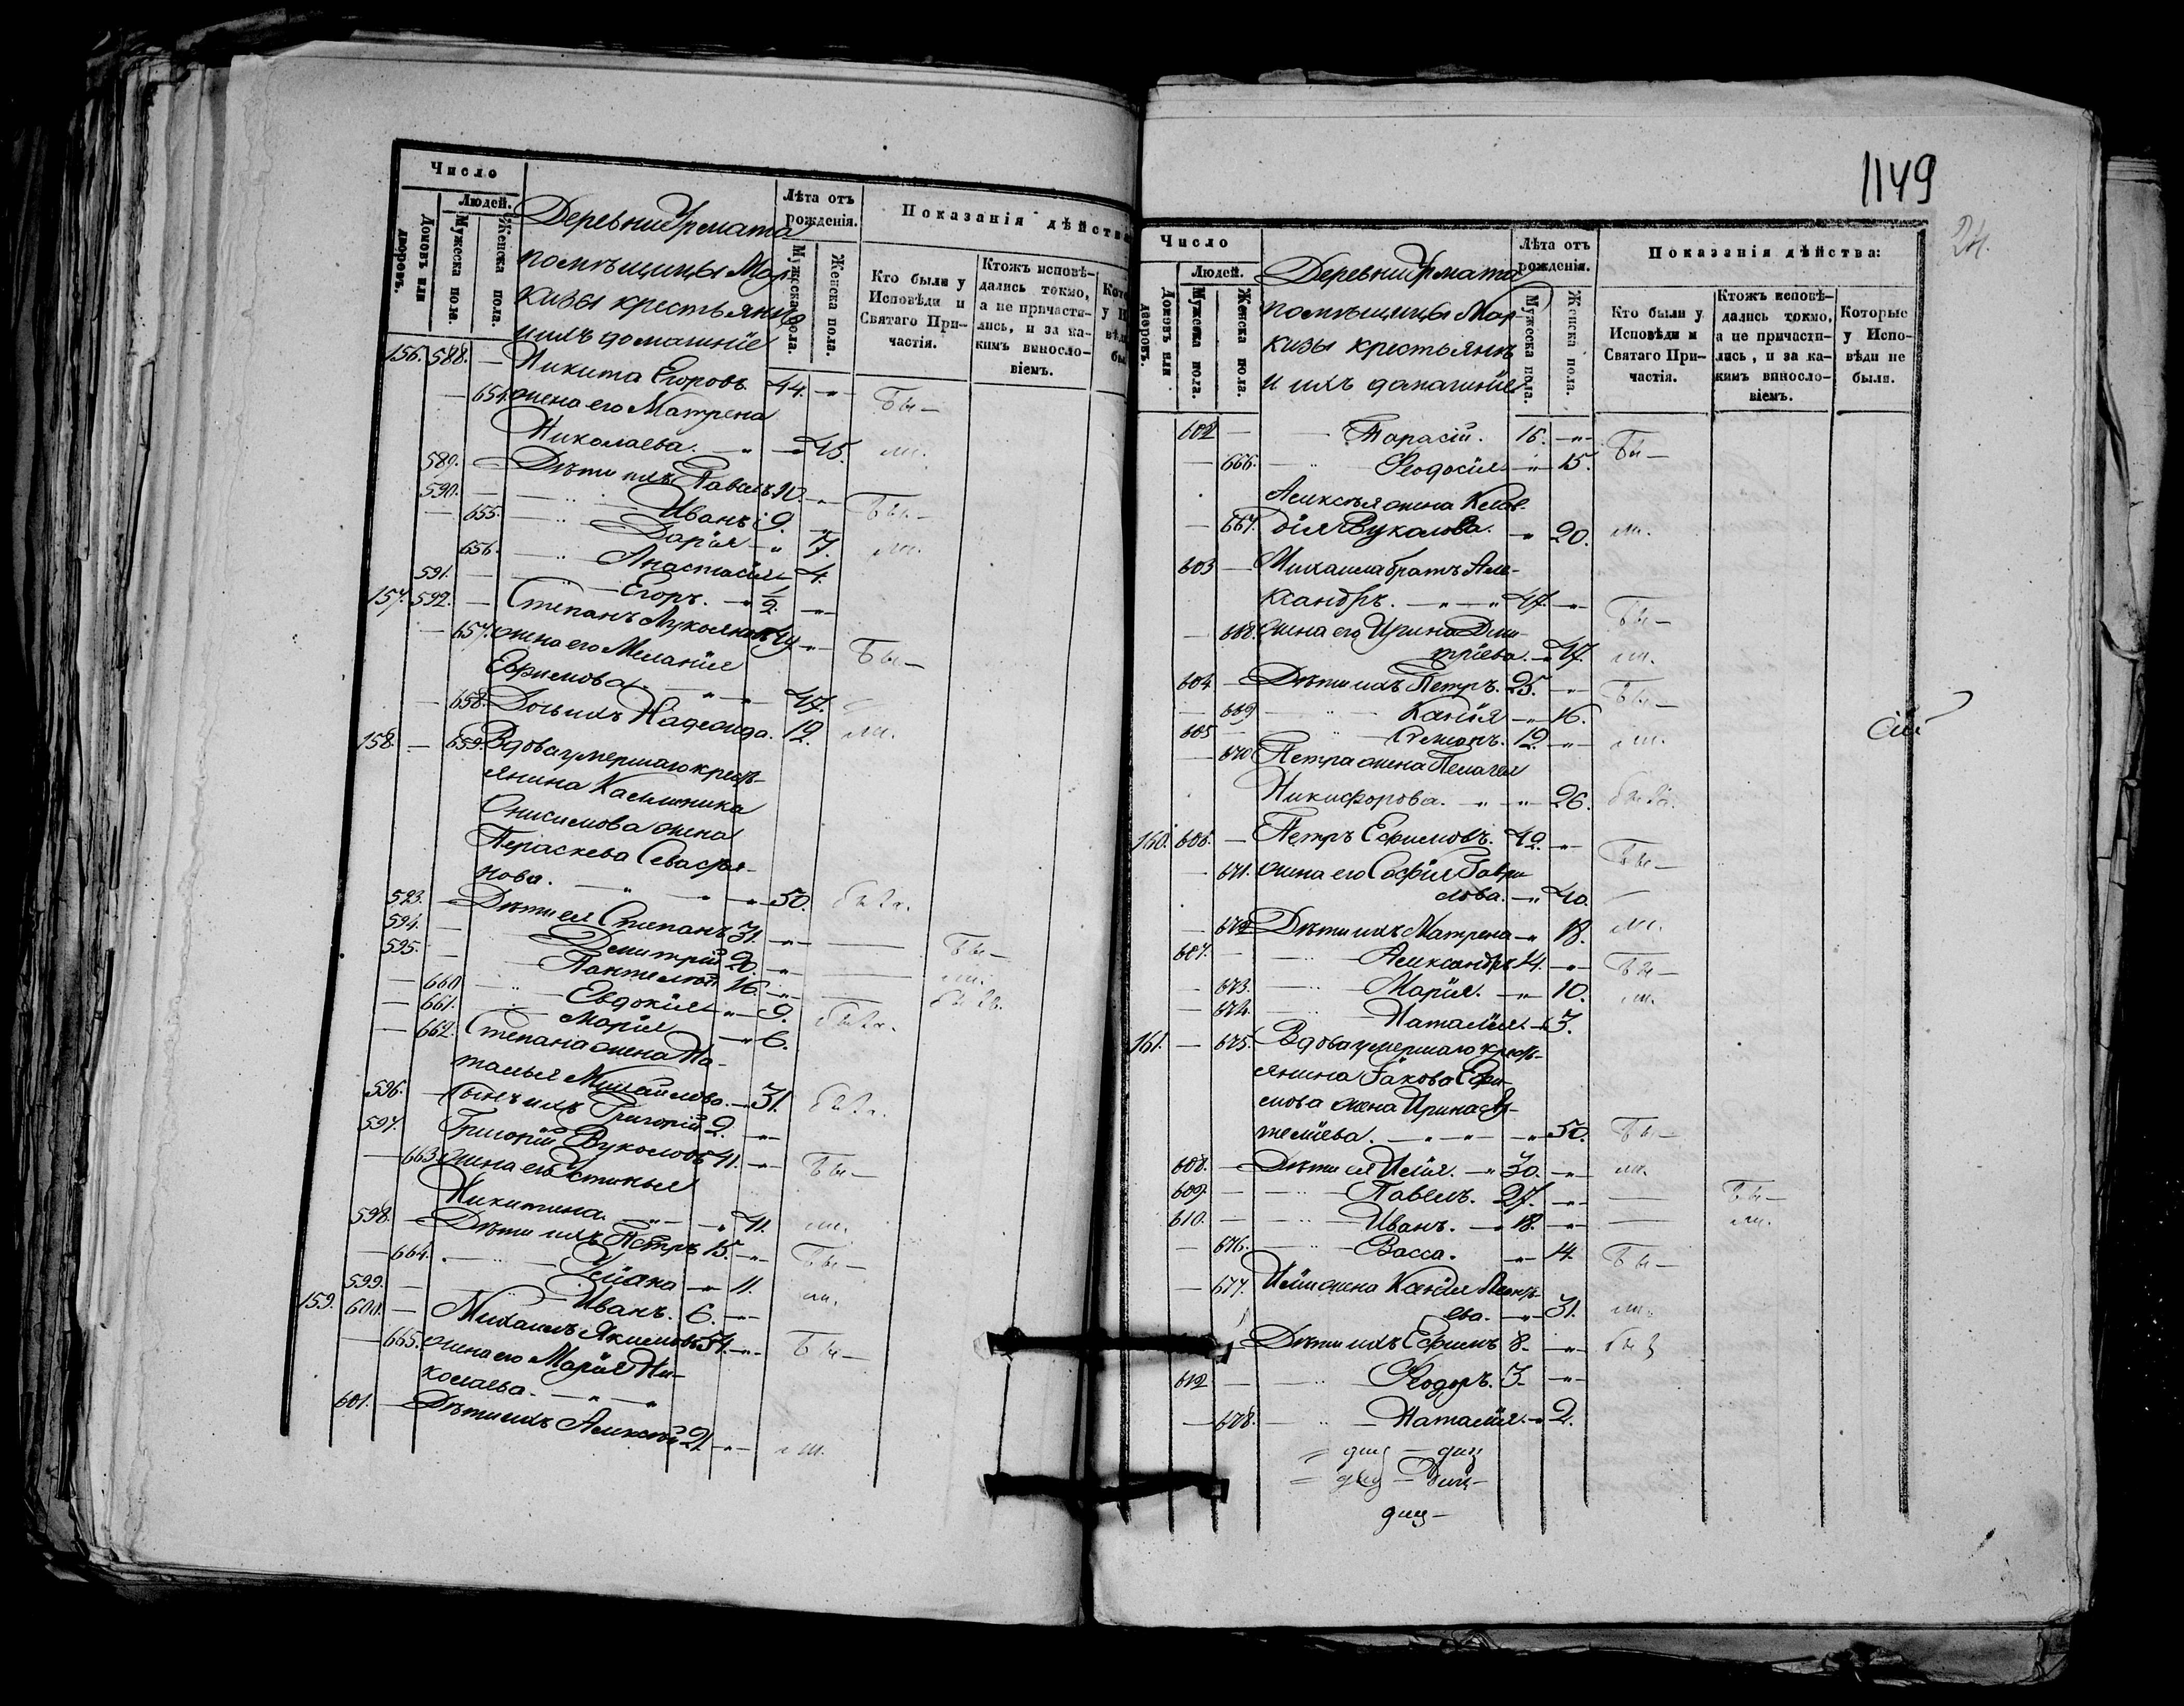 Число
Людей.
Домовъ или дворовъ.
Мужеска пола.
Женска пола.
Деревни Урмата
помѣщицы Мар-
кизы крестьянѣ
и ихъ домашнiе
Лѣта отъ рожденія.
Мужеска пола.
Женска пола.
Показанія дѣйства
Кто были у Исповѣди и Святаго При-частія.
Ктожъ исповѣ-дались токмо, а не причасти-лись, и за ка-кимъ винсло-віемъ.
156. 588. — Никита Егоровъ 44. "— Бы—
— 654. жена его Матрена
Николаева. — " — 45. ли.
589. — Дѣти ихъ Павелъ 10. "— Бы—
590. — Иванъ 9. "
— 655. — Дарiя — " 7. ли.
656. — Анастасiя — 4.
591. — Егоръ. — 1/2 "—
157. 592. — Степанъ Лукояновъ 49 "— Бы—
— 657. жена его Меланiя
Ефимова — " — 47.
— 658. Дочь ихъ Надежда. 12. ли.
158. — 659. Вдова умершаго кресть-
янина Калинника
Онисимова жена
Параскева Севастья-
нова. — " — " — 50. была.
593. — Дѣти ея Степанъ 31. "— — Бы—
594. — Димитрiй 20. "— — ли.
595. — Пантелей 16. "—
— 660 — Евдокiя — " 9. была.
— 661. — Марiя — " 6.
— 662. Степана жена На-
талья Михайлова. — 31. была.
596. — Сынъ ихъ Григорiй 2. "—
597. Григорiй Вуколовъ 41. "— Бы—
— 663. жена его Устинья
Никитина. — " — " 41. ли.
598. — Дѣти ихъ Петръ 15. "— Бы—
— 664. — Улiяна — " 11. ли.
599. — Иванъ. 6. "—
159. 600. — Михаилъ Якимовъ 54. "— Бы—
— 665. жена его Марiя Ни-
колаева. — " — "
601. — Дѣти ихъ Алексѣй 21. "— ли.
1149
24.
Число
Людей.
Домовъ или дворовъ.
Мужеска пола.
Женска пола.
Деревни Урмата
помѣщицы Мар-
кизы крестьянѣ
и ихъ домашнiе
Лѣта отъ рожденія.
Мужеска пола.
Женска пола.
Показанія дѣйства:
Кто были у Исповѣди и Святаго При-частія.
Ктожъ исповѣ-дались токмо, а не причасти-лись, и за ка-кимъ винсло-віемъ.
Которые у Испо-вѣди не были.
602 — — Тарасiй. 16. "— Бы—
— 666. — Ѳеодосiя — " 15.
Алексѣя жена Клав-
— 667. дiя Вуколова. — " 20. ли.
603 — Михаила братъ Але-
ксандръ. — " — " 47. "— Бы—
— 668. жена его Ирина Дми-
трiева. — " 47. ли.
604 — Дѣти ихъ Петръ. 25. "— Бы—
— 669 — Ксенiя — " 16.
605 — Семенъ. 12. "— ли.
— 670 Петра жена Пелагея
Никифорова. — " — " 26. была.
160. 606. — Петръ Ефимовъ. 42. "— Бы—
— 671. жена его Софiя Гаври-
лова. — " 40.
— 672 Дѣти ихъ Матрена — " 18. ли.
607. — Александръ 14. "— Бы—
— 673. — Марiя. — " 10. ли.
— 674. — Наталiя. — " 3.
161. — 675. Вдова умершаго кресть-
янина Iакова Ефи-
мова жена Ирина
50. Бы—
608. — Дѣти ея Илiя. — " 30. "— ли.
609. — Павелъ. 27. "— — Бы—
610. — Иванъ. — " 18. "— — ли.
— 676. — Васса. — " 14. Бы—
— 677. Илiи жена Ксенiя Петр-
ова. — " 31. ли.
— Дѣти ихъ Ефимъ 8. — "— былъ
612 — Ѳеодоръ. 3. — "—
— 678. — Наталiя. — " 2.